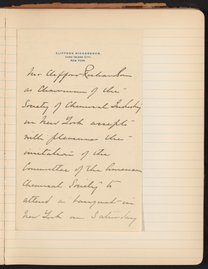 CLIFFORD RICHARDSON
LONG ISLAND CITY,
NEW YORK.
Mr Clifford Richardson
as Chairman of the
Society of Chemical Industry
in New York accepts
with pleasure the
invitation of the
Committee of the American
Chemical Society to
attend a banquet in
New York on Saturday